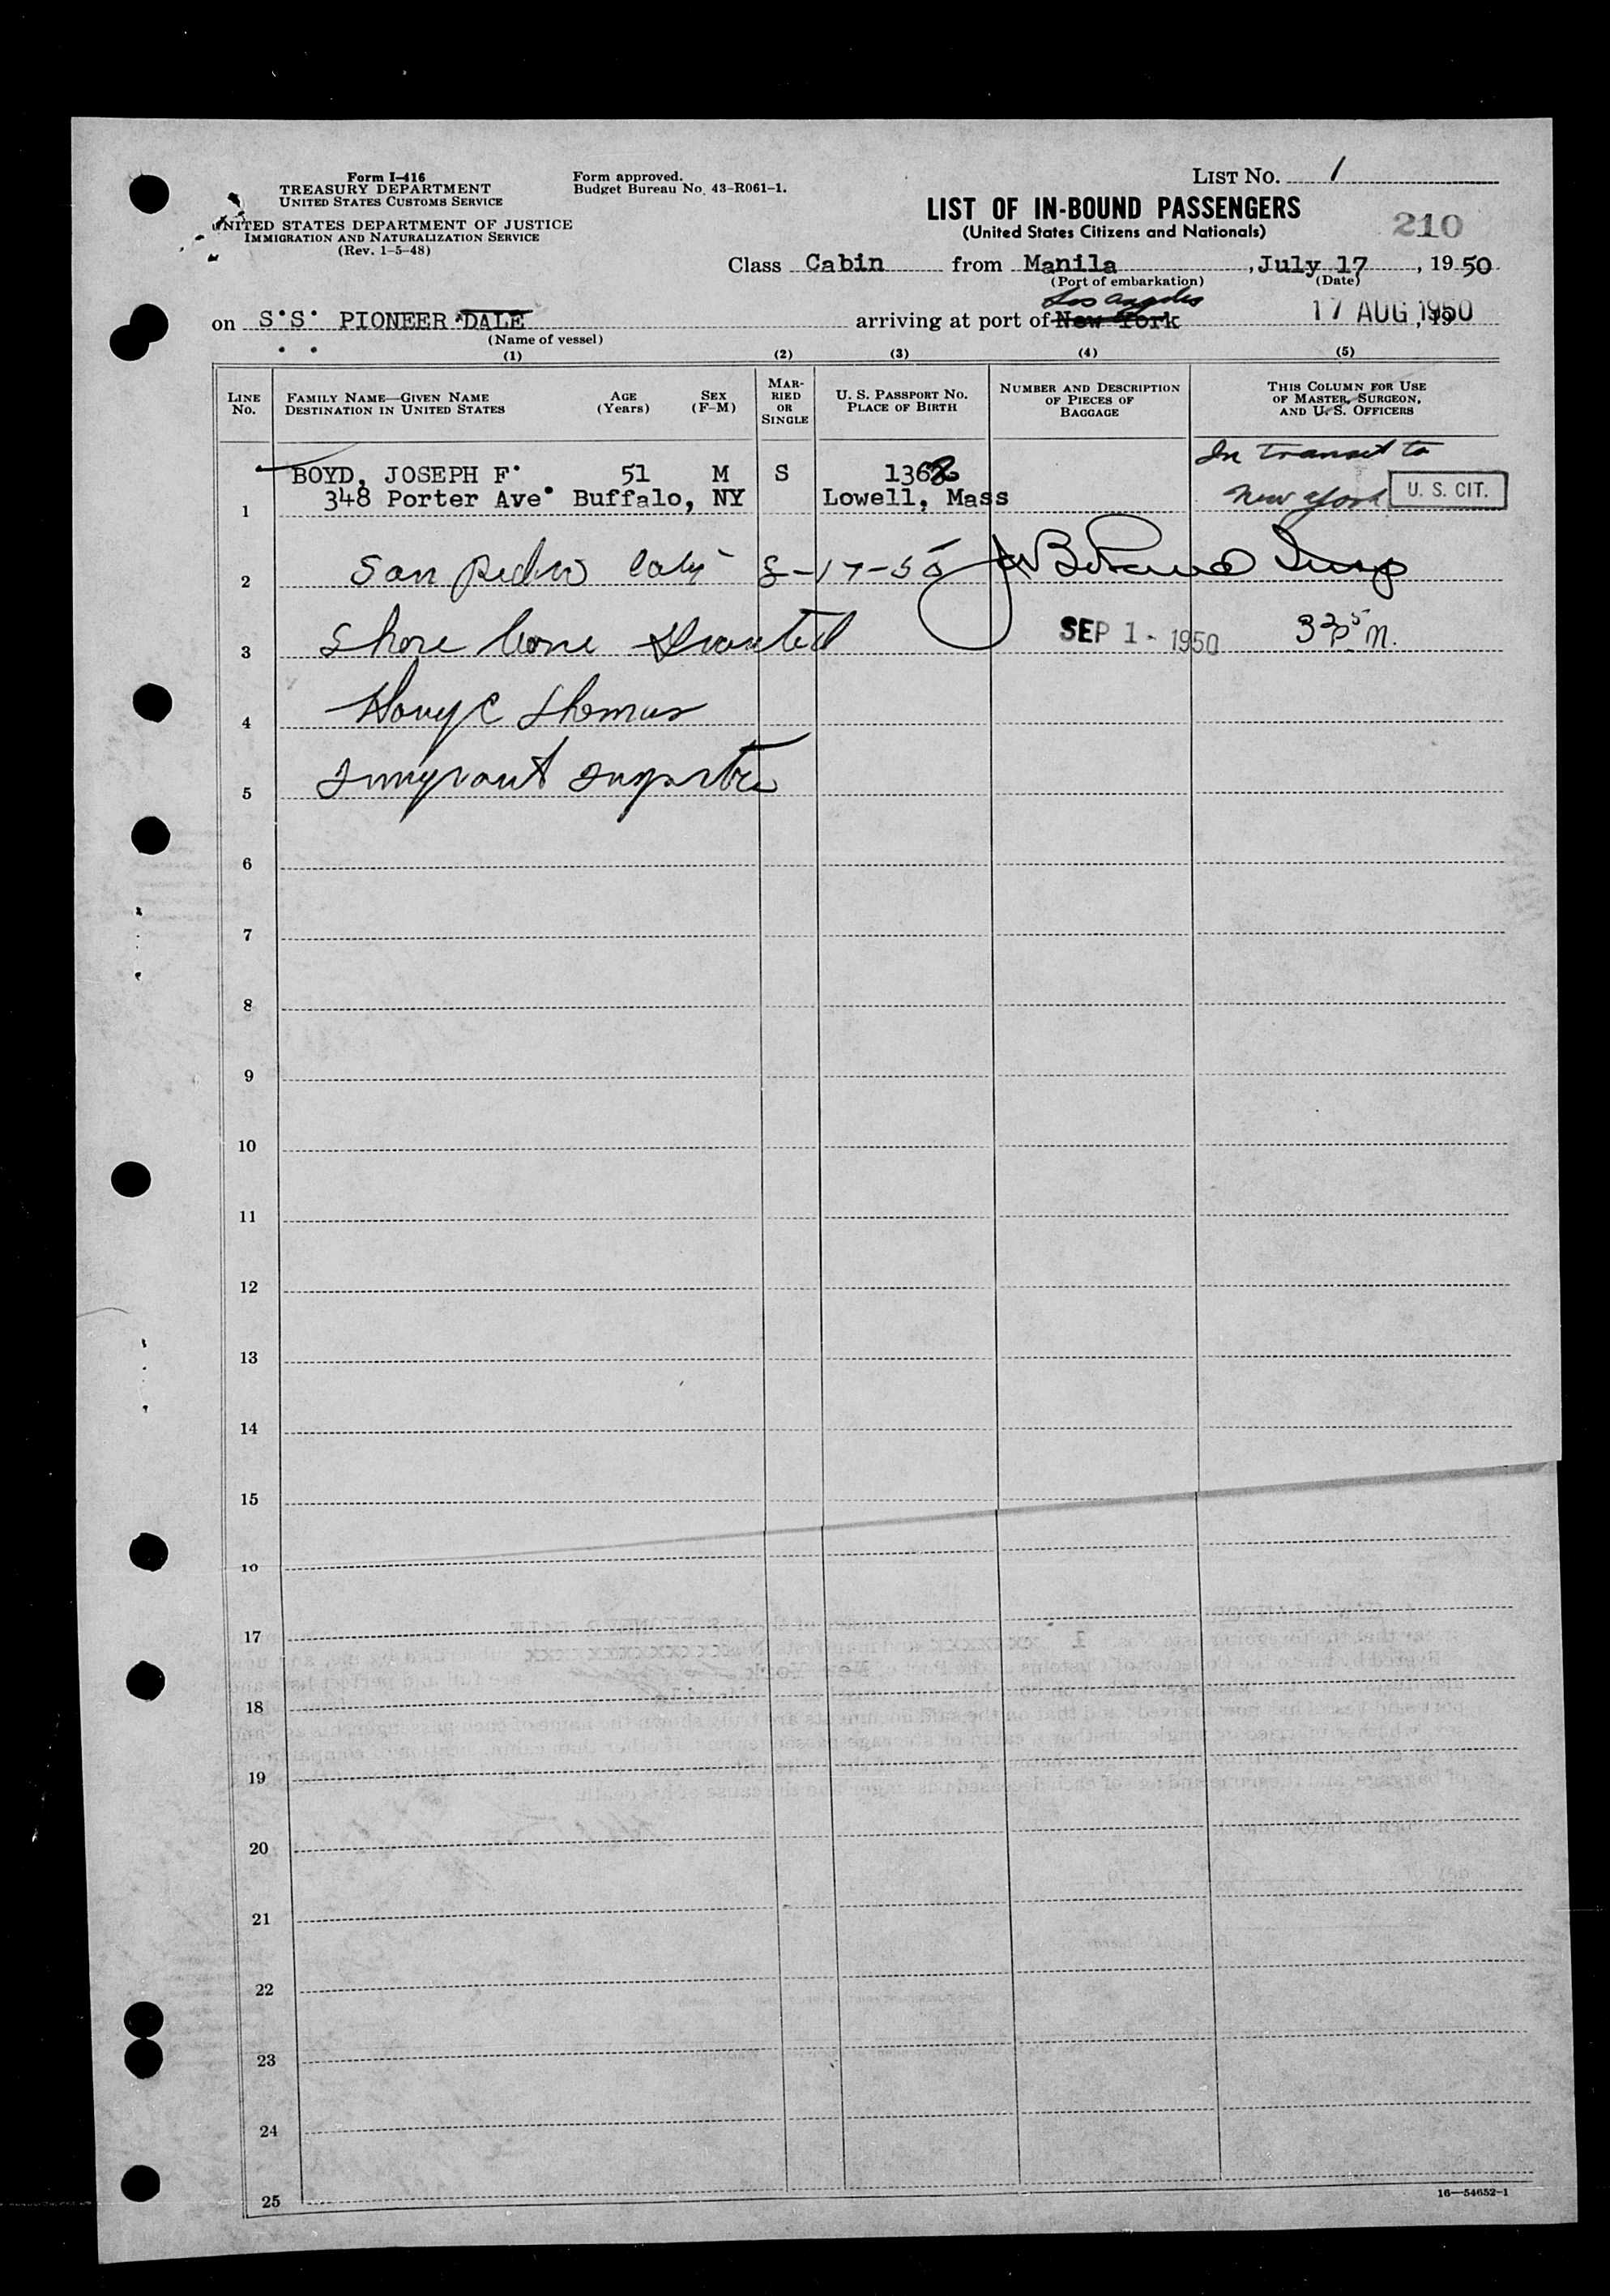 Form I-416
TREASURY DEPARTMENT
UNITED STATES CUSTOMS SERVICE
UNITED STATES DEPARTMENT OF JUSTICE
IMMIGRATION AND NATURALIZATION SERVICE
(Rev. 1-5-48)
Form approved.
Budget Bureau No. 43-R061-1.
LIST NO. 1
LIST OF IN-BOUND PASSENGERS
(United States Citizens and Nationals)
210
Class Cabin from Manila, July 17, 1950
(Port of embarkation) (Date)
Los Angeles
on S.S. PIONEER DALE arriving at port of New York 17 AUG 1950, 19
(Name of vessel)
(1) (2) (3) (4) (5)
LINE No.
FAMILY NAME—GIVEN NAME
DESTINATION IN UNITED STATES
AGE (Years)
SEX (F-M)
MARRIED OR SINGLE
U. S. PASSPORT NO.
PLACE OF BIRTH
NUMBER AND DESCRIPTION OF PIECES OF BAGGAGE
THIS COLUMN FOR USE OF MASTER, SURGEON, AND U. S. OFFICERS
In transit to
BOYD, JOSEPH F. 51 M S 1362
1 348 Porter Ave. Buffalo, NY Lowell, Mass New York U. S. CIT.
2 San Pedro Calif 8-17-50
3 Shore leave Granted SEP 1 - 1950
4 Thomas
5 Immigrant Inspector
6
7
8
9
10
11
12
13
14
15
16
17
18
19
20
21
22
23
24
25
16—54652-1